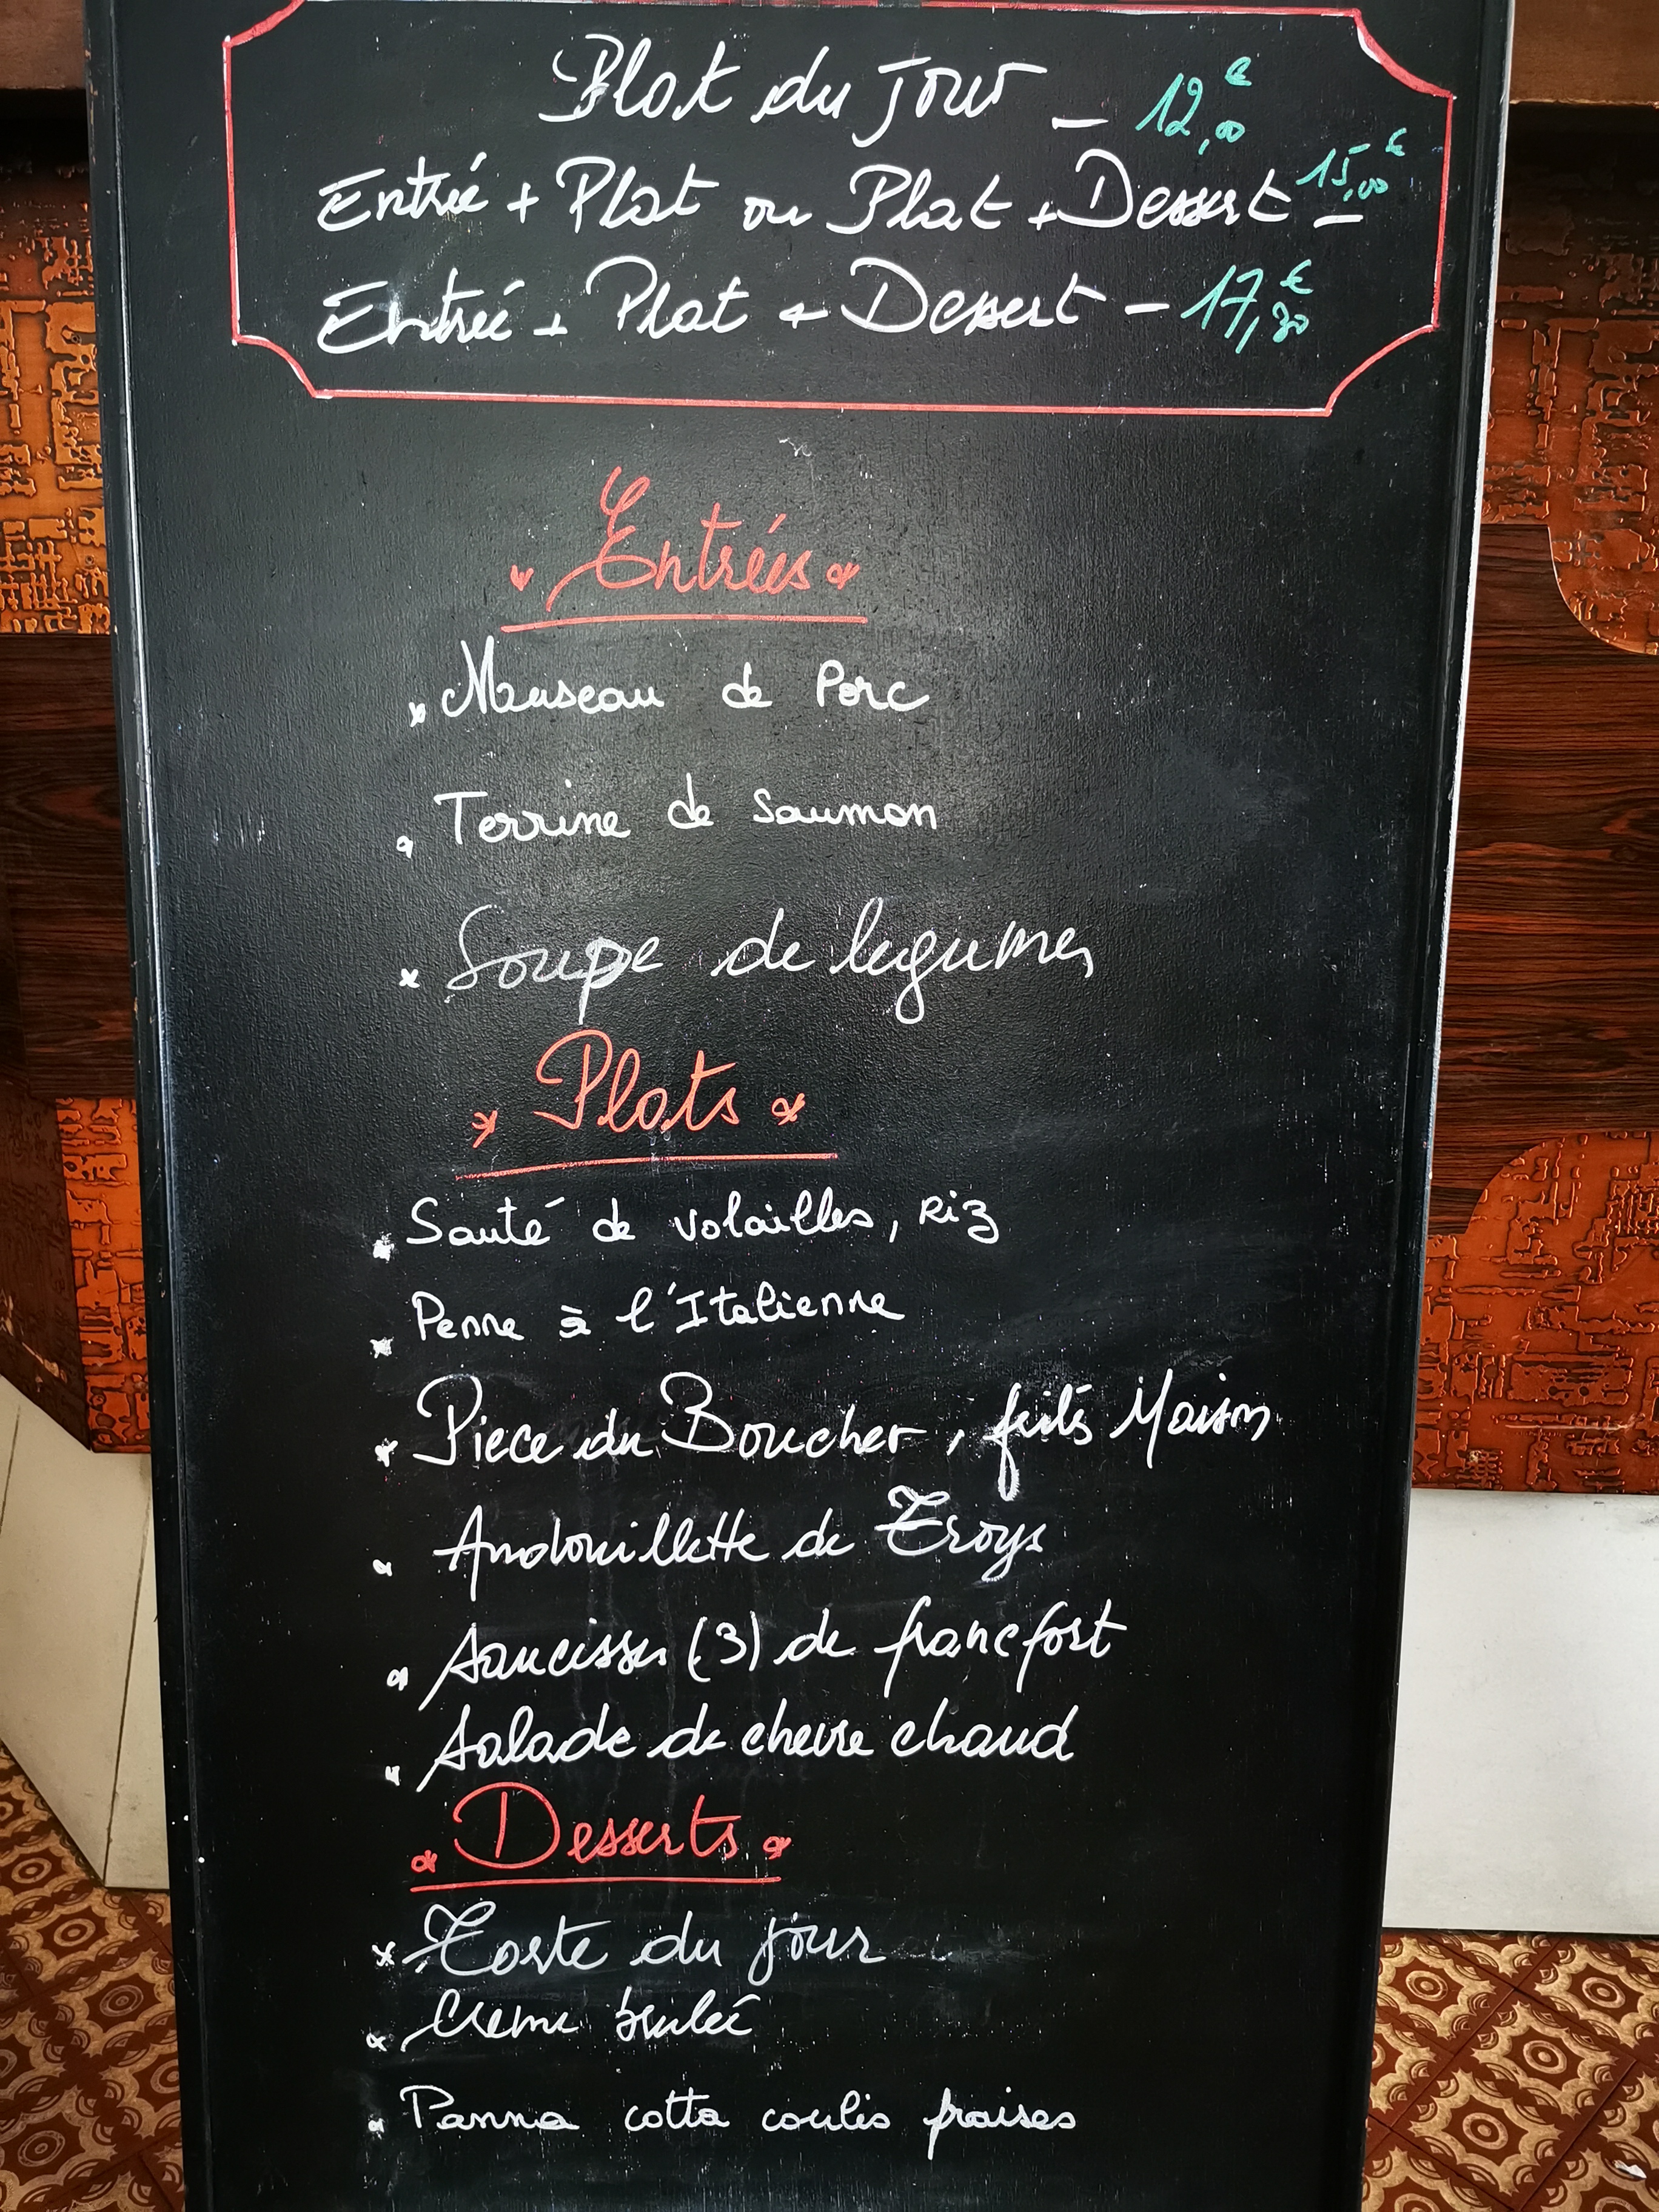 Plat du jour - 12,00€
Entrée + Plat ou Plat + Dessert - 15,00€
Entrée + Plat + Dessert - 17,30€
Entrées
Museau de Porc
Terrine de Saumon
Soupe de legumes
Plats
Sauté de volailles, Riz
Penne à l'Italienne
Piece du Boucher, frites Maison
Andouillette de Troyes
Saucisses (3) de francfort
Salade de chevre chaud
Desserts
Tarte du jour
Creme brulée
Panna cotta coulis fraises